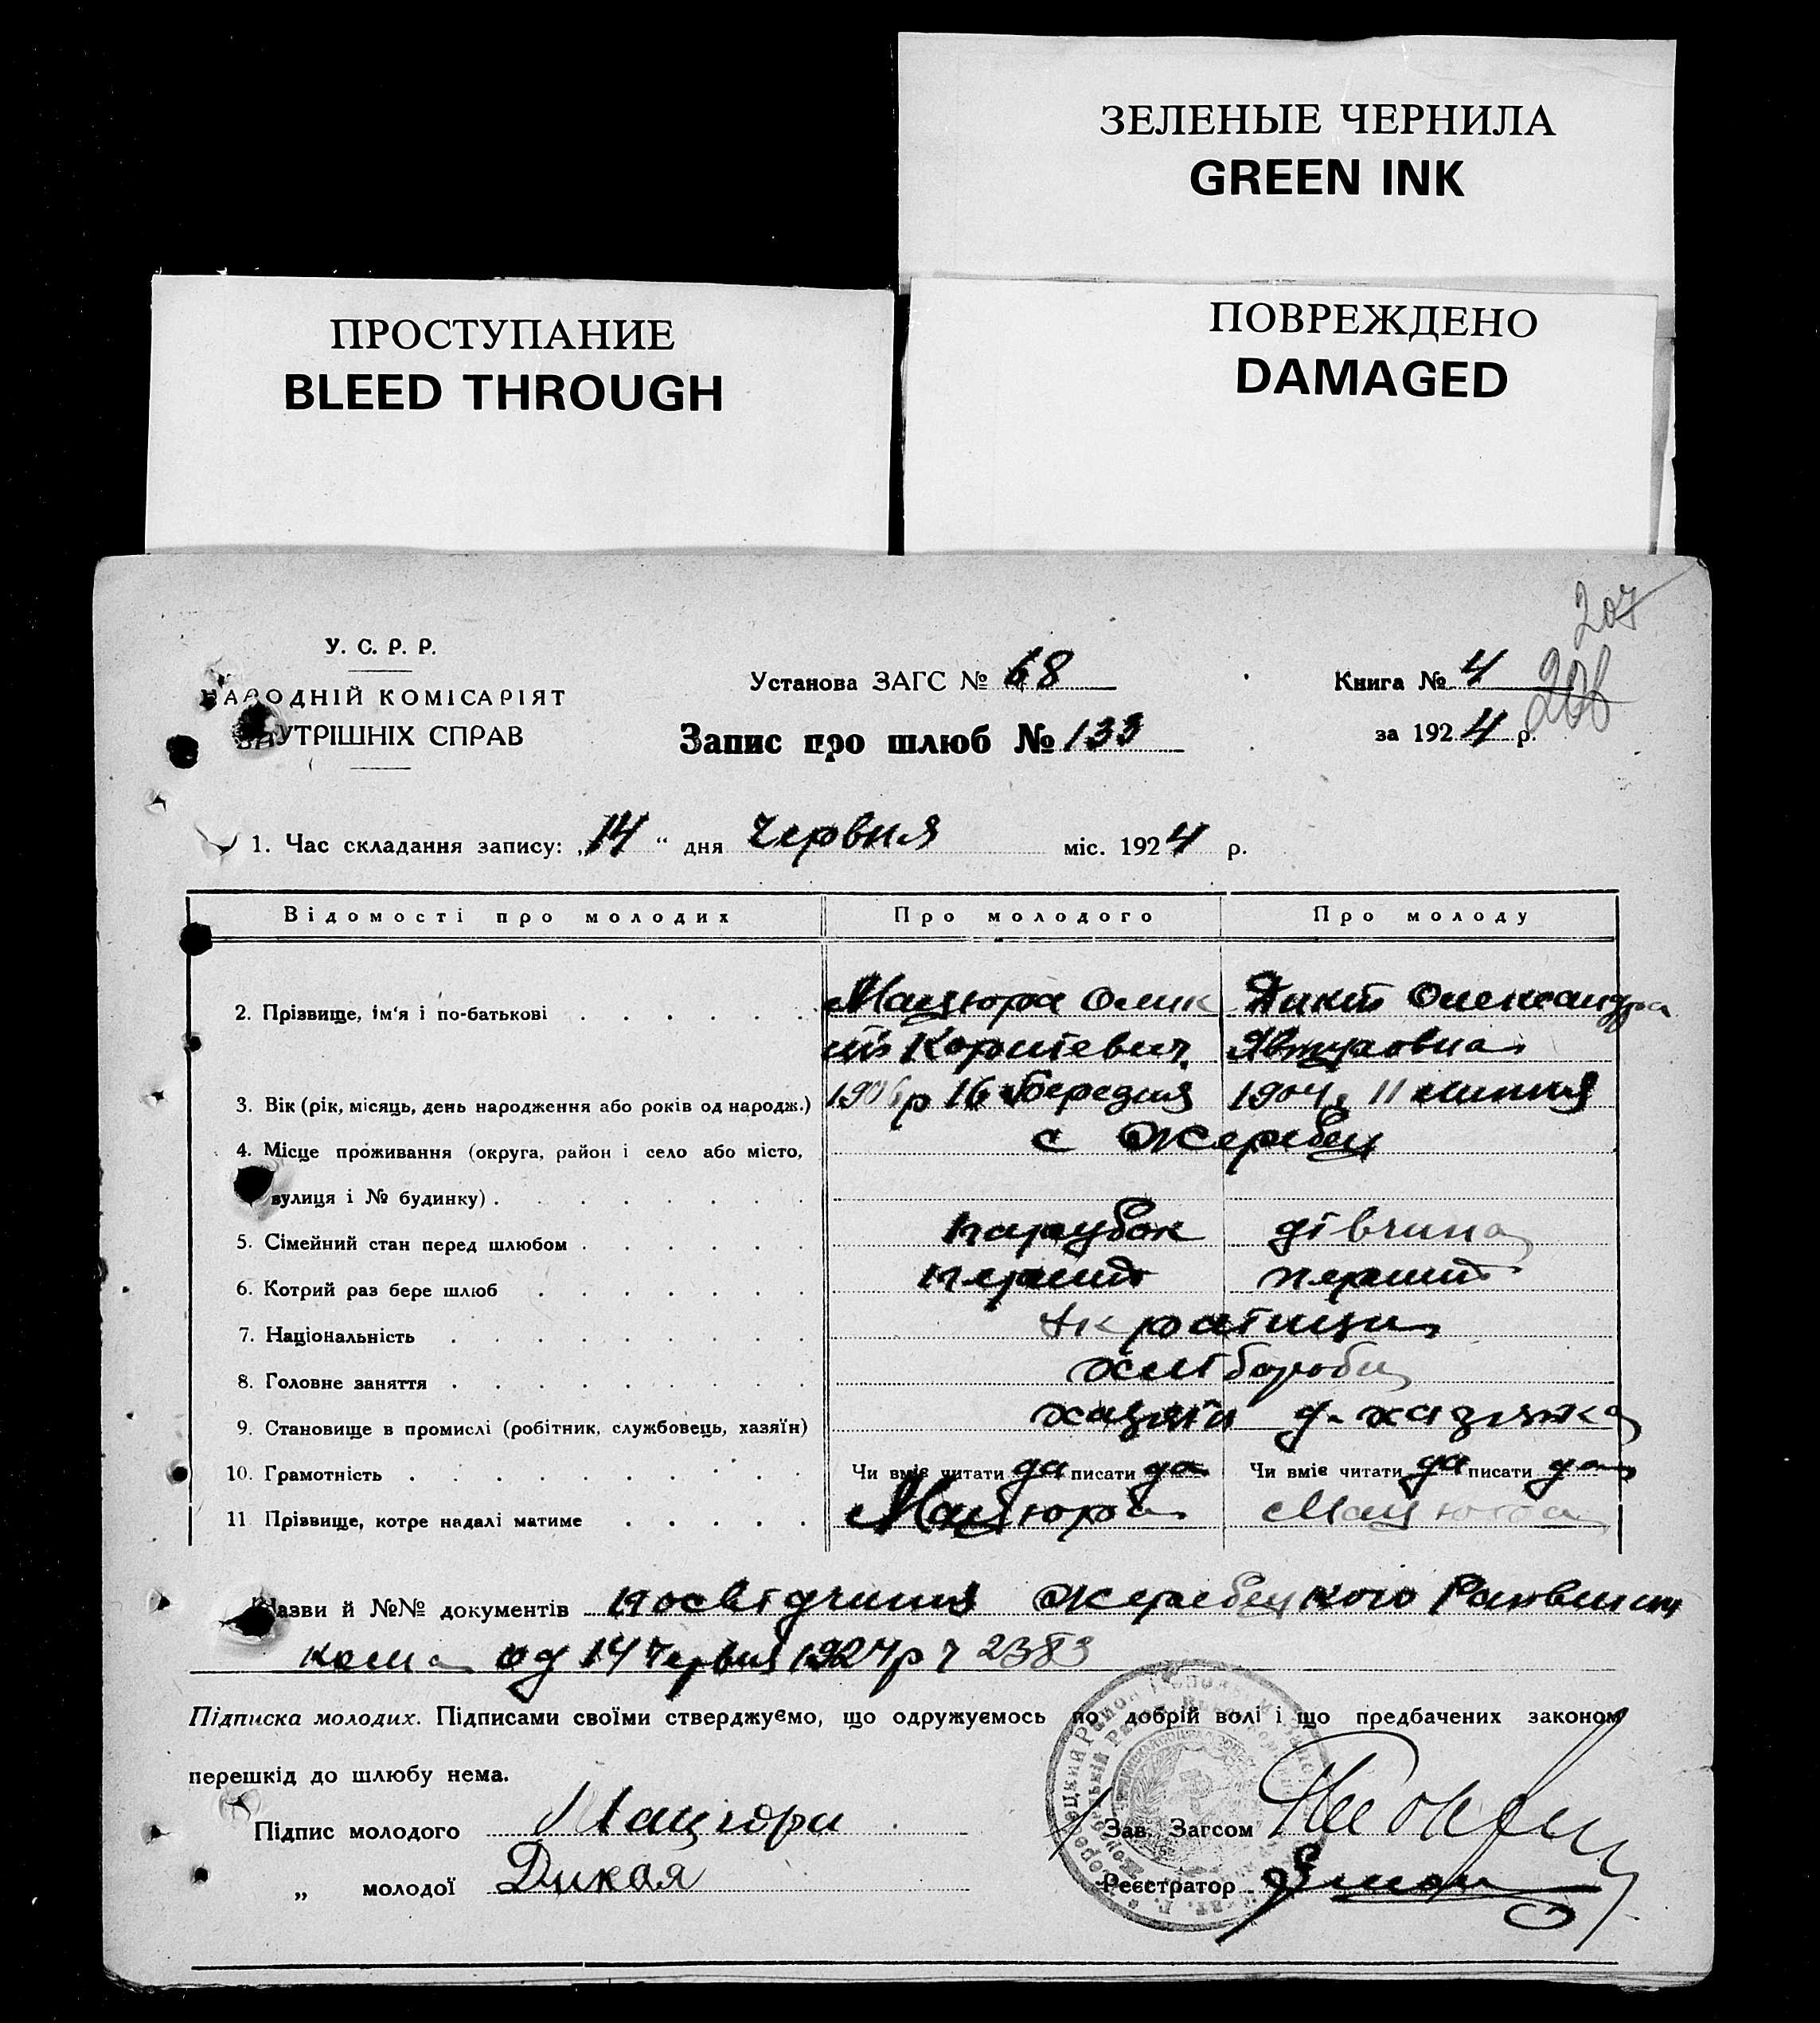 ЗЕЛЕНЫЕ ЧЕРНИЛА
GREEN INK
ПРОСТУПАНИЕ
BLEED THROUGH
ПОВРЕЖДЕНО
DAMAGED
207
206
У. С. Р. Р.
НАРОДНІЙ КОМІСАРІЯТ
ВНУТРІШНІХ СПРАВ
Установа ЗАГС № 68
Книга № 4
Запис про шлюб № 133
за 1924 р.
1. Час складання запису: „14“ дня червня міс. 1924 р.
Відомості про молодих Про молодого Про молоду
2. Прізвище, ім'я і по-батькові Мацюра Олександра
Явтуховна
3. Вік (рік, місяць, день народження або років од народж.) 1906 р 16 березня 1904 р 11 липня
4. Місце проживання (округа, район і село або місто, с Жеребец
вулиця і № будинку)
5. Сімейний стан перед шлюбом парубок дівчина
6. Котрий раз бере шлюб перший перший
7. Національність українци
8. Головне заняття хлібороби
9. Становище в промислі (робітник, службовець, хазяїн) хазяїн д. хазяжка
10. Грамотність Чи вміє читати да писати да Чи вміє читати да писати да
11. Прізвище, котре надалі матиме Мацюра Мацюра
Назви й №№ документів посвідчиння Жеребецкого Райвикон
кома од 14 червня 1924 р ч 2383
Підписка молодих. Підписами своїми стверджуємо, що одружуємось по добрій волі і що предбачених законом
перешкід до шлюбу нема.
Підпис молодого Мацюра
Зав. Загсом
„ молодої Дикая
Реєстратор